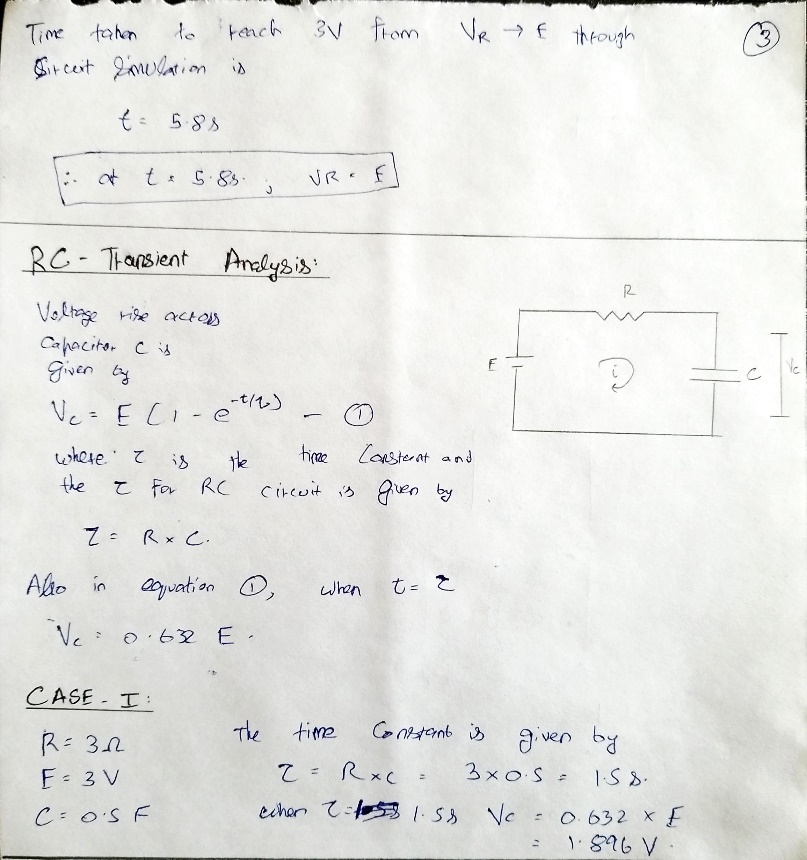 Time taken to reach 3V from VR → E through
Circuit Simulation is
3
t = 5.8s
∴ at t = 5.8s. ; VR = E
RC - Transient Analysis:
Voltage rise across
Capacitor C is
given by
Vc = E (1 - e^-t/τ) - ①
where τ is the time Constant and
the τ For RC circuit is given by
τ = R × C.
Also in equation ①, when t = τ
Vc = 0.632 E.
R
E
i
C
Vc
CASE - I:
R = 3Ω
E = 3 V
C = 0.5 F
The time Constant is given by
τ = R×C = 3×0.5 = 1.5s.
when τ = 1.5s Vc = 0.632 × E
= 1.896 V.